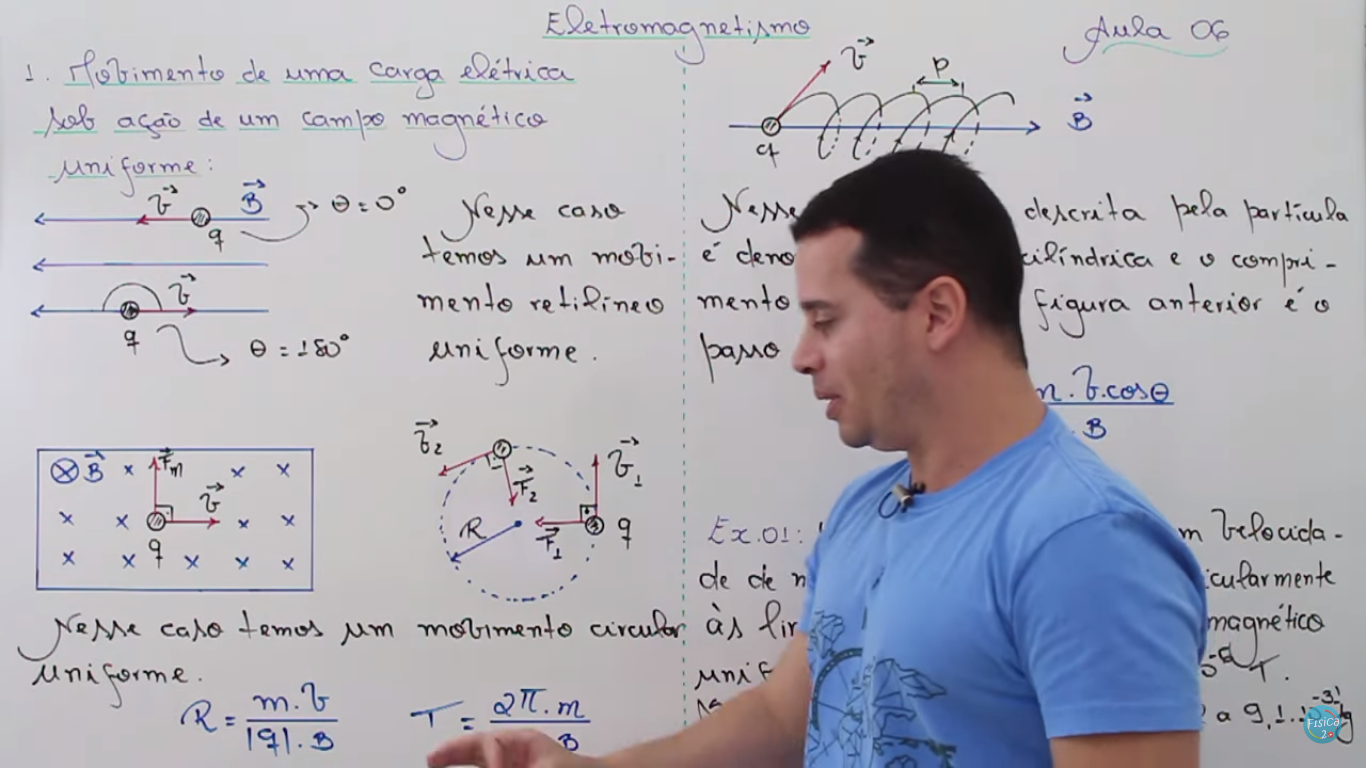 Eletromagnetismo
Aula 06
1. Movimento de uma carga elétrica
sob ação de um campo magnético
uniforme:
v B θ = 0°
q
v
q θ = 180°
Nesse caso
temos um movi-
mento retilíneo
uniforme.
B Fm
v
q
v2 v1
F2
R F1 q
Nesse caso temos um movimento circular
uniforme.
R = m.v
|q|.B
T = 2π.m
B
v P
B
q
descrita pela partícula
cilíndrica e o compri-
mento figura anterior é o
passo
.v.cosθ
B
Ex.01: velocida-
de de
às magnético
T.
a 9,1.
Física 2.0